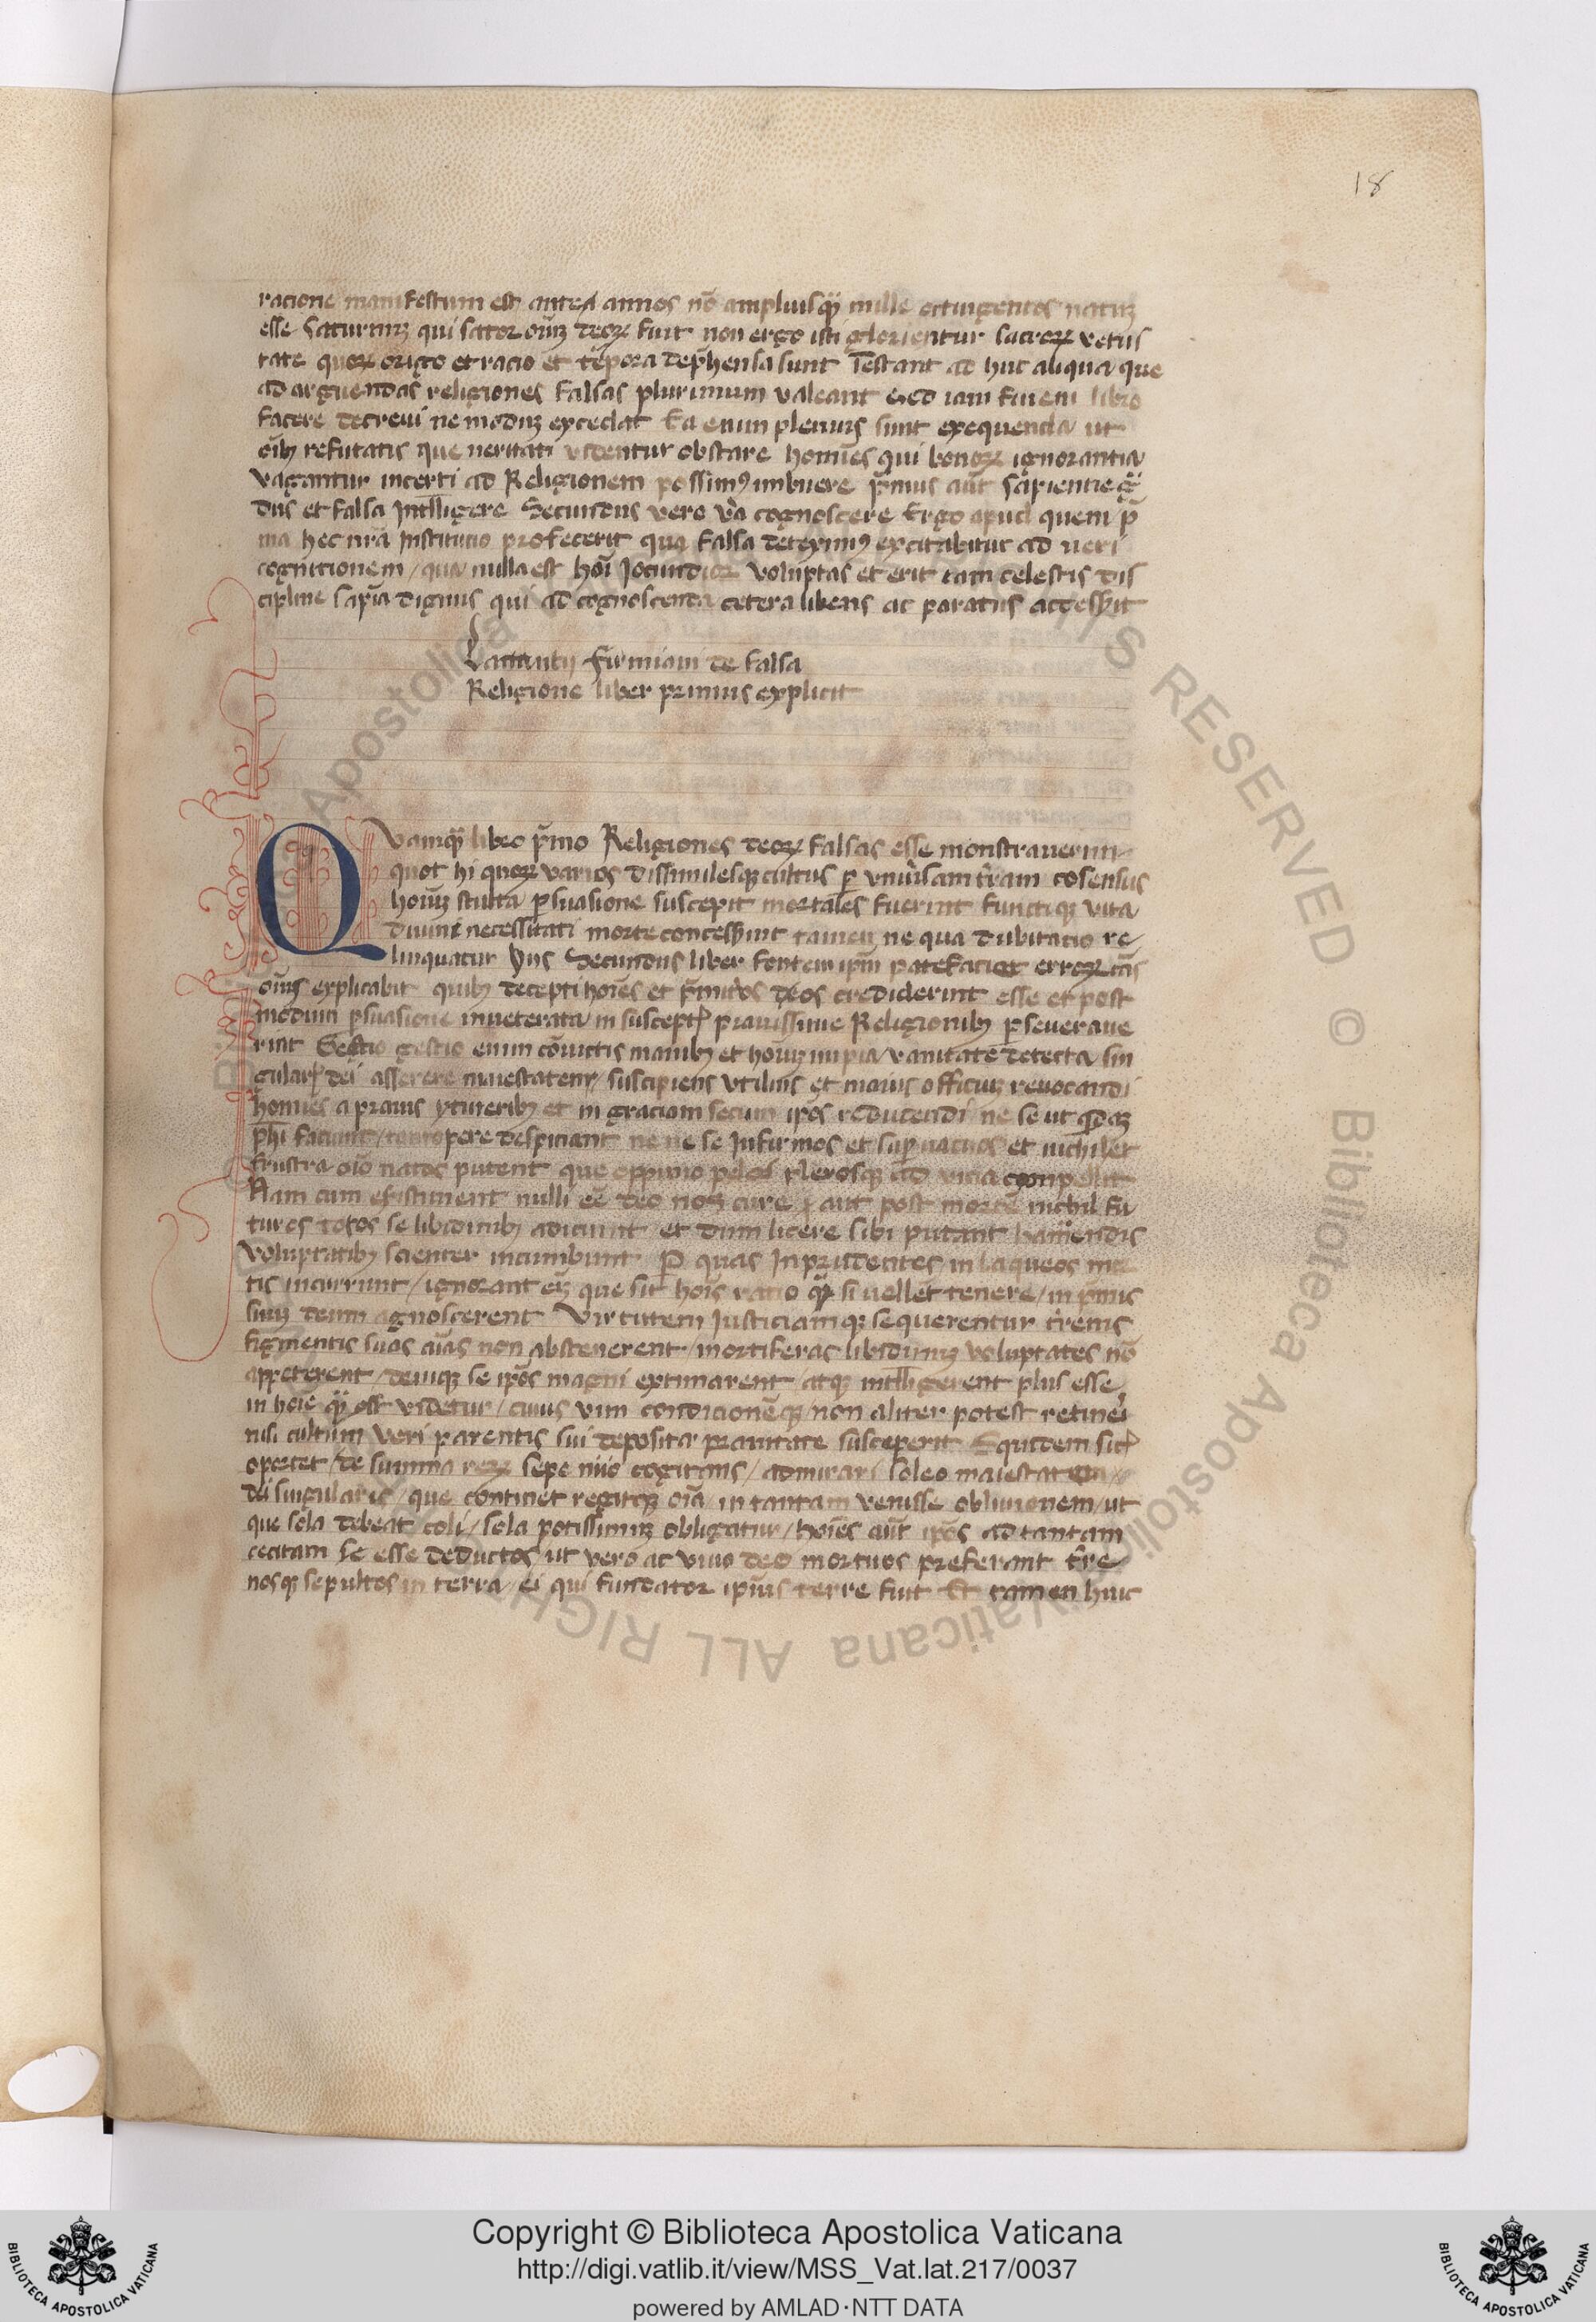 18
racione manifestum est antea annos nō ampliusq̃ mille octingentos natuʒ
esse Saturnuʒ qui sator oīuʒ deoꝝ fuit non ergo isti glorientur sacroꝝ vetus
tate quoꝝ origo et racio et tēpora dep̄hensa sunt Restant ad huc aliqua que
ad arguendas religiones falsas plurimum valeant Sed iam finem libro
facere decreui ne moduʒ excedat Ea enim plenius sunt exequenda ut
oībꝫ refutatis que ueritati videntur obstare homīes qui bonoꝝ ignorantia
vagantur incerti ad Religionem possimꝰ imbuere p̄mus aūt sapientie g̃
dus et falsa Intelligere Secundus vero va cognoscere Ergo apud quem p̄
ma hec nrā Institucio profecerit qua falsa deteximꝰ excitabitur ad ueri
cognicionem / qua nulla est hoī Jocundior voluptas et erit iam celestis dis
cipline sapīa dignus qui ad cognoscenda cetera libens ac paratus accesserit
Lactantij firmiani de falsa
Religione liber primus explicit
Quamq̃ libro p̄mo Religiones deoꝝ falsas esse monstrauerim
quot hi quoꝝ varios dissimilesqꝫ cultus ꝑ vniūsam trām cōsensus
hoīuʒ stulta ꝑsuasione suscepit mortales fuerint functiqꝫ vita
diuine necessitati morte concesserint tamen ne qua dubitacio re
linquatur hijs Secundus liber fontem ipm̄ patefaciet erroꝝ cās
omīs explicabit quibꝫ decepti hoīes et p̄mitꝰ deos crediderint esse et post
modum ꝑsuasione inueterata in susceptꝭ prauissime Religionibꝫ ꝑseueraue
rint Gestio enim cōuictis manibꝫ et hoīuʒ impia vanitate detecta sin
gularꝭ dei asserere maiestatem / suscipiens vtilius et maius officiuʒ reuocandi
homīes a prauis ytineribꝫ et in graciam secum ipōs reducendi ne se ut qdaʒ
phī faciunt / tantopere despiciant ne ue se Infirmos et suꝑuacuos et nichilet
frustra oīo natos putent que oppinio plerosqꝫ ad vicia compellit
Nam cum existiment nulli eē deo nos cure / aut post mortē nichil fu
turos totos se libidinibꝫ adiciunt / et dum licere sibi putant hauriendis
voluptatibꝫ scienter incumbunt P quas Inprudentes / in laqueos mor
tis incurrunt / ignorant eʒ que sit hoīs ratio q̃ si uellēt tenere / in p̄mis
suuʒ deum agnoscerent Virtutem Justiciamqꝫ sequerentur t̄renis
figmentis suas aīas non abstenerent / mortiferas libidinuʒ voluptates nō
appeterent / deniqꝫ se ipōs magni extimarent / atqꝫ intelligerent plus esse
in hoīe q̃ oss̄ videtur / cuius vim condicionēqꝫ non aliter potest retineri
nisi cultum veri parentis sui deposita prauitate susceperit Equidem sicꝭ
oportet / de summa reꝝ sepe mīo cogitans / admirari soleo maiestatem
dei singularis / que continet regitqꝫ oīa / in tantam venisse obliuionem / ut
que sola debeat coli / sola potissimuʒ obligatur / hoīes aūt ipōs ad tantam
cecitam se esse deductos / ut vero ac viuo deo mortuos preferant t̄re
nosqꝫ sepultos in terra / ei qui fundator ipīus terre fuit Et tamen huic
Copyright © Biblioteca Apostolica Vaticana
http://digi.vatlib.it/view/MSS_Vat.lat.217/0037
powered by AMLAD·NTT DATA